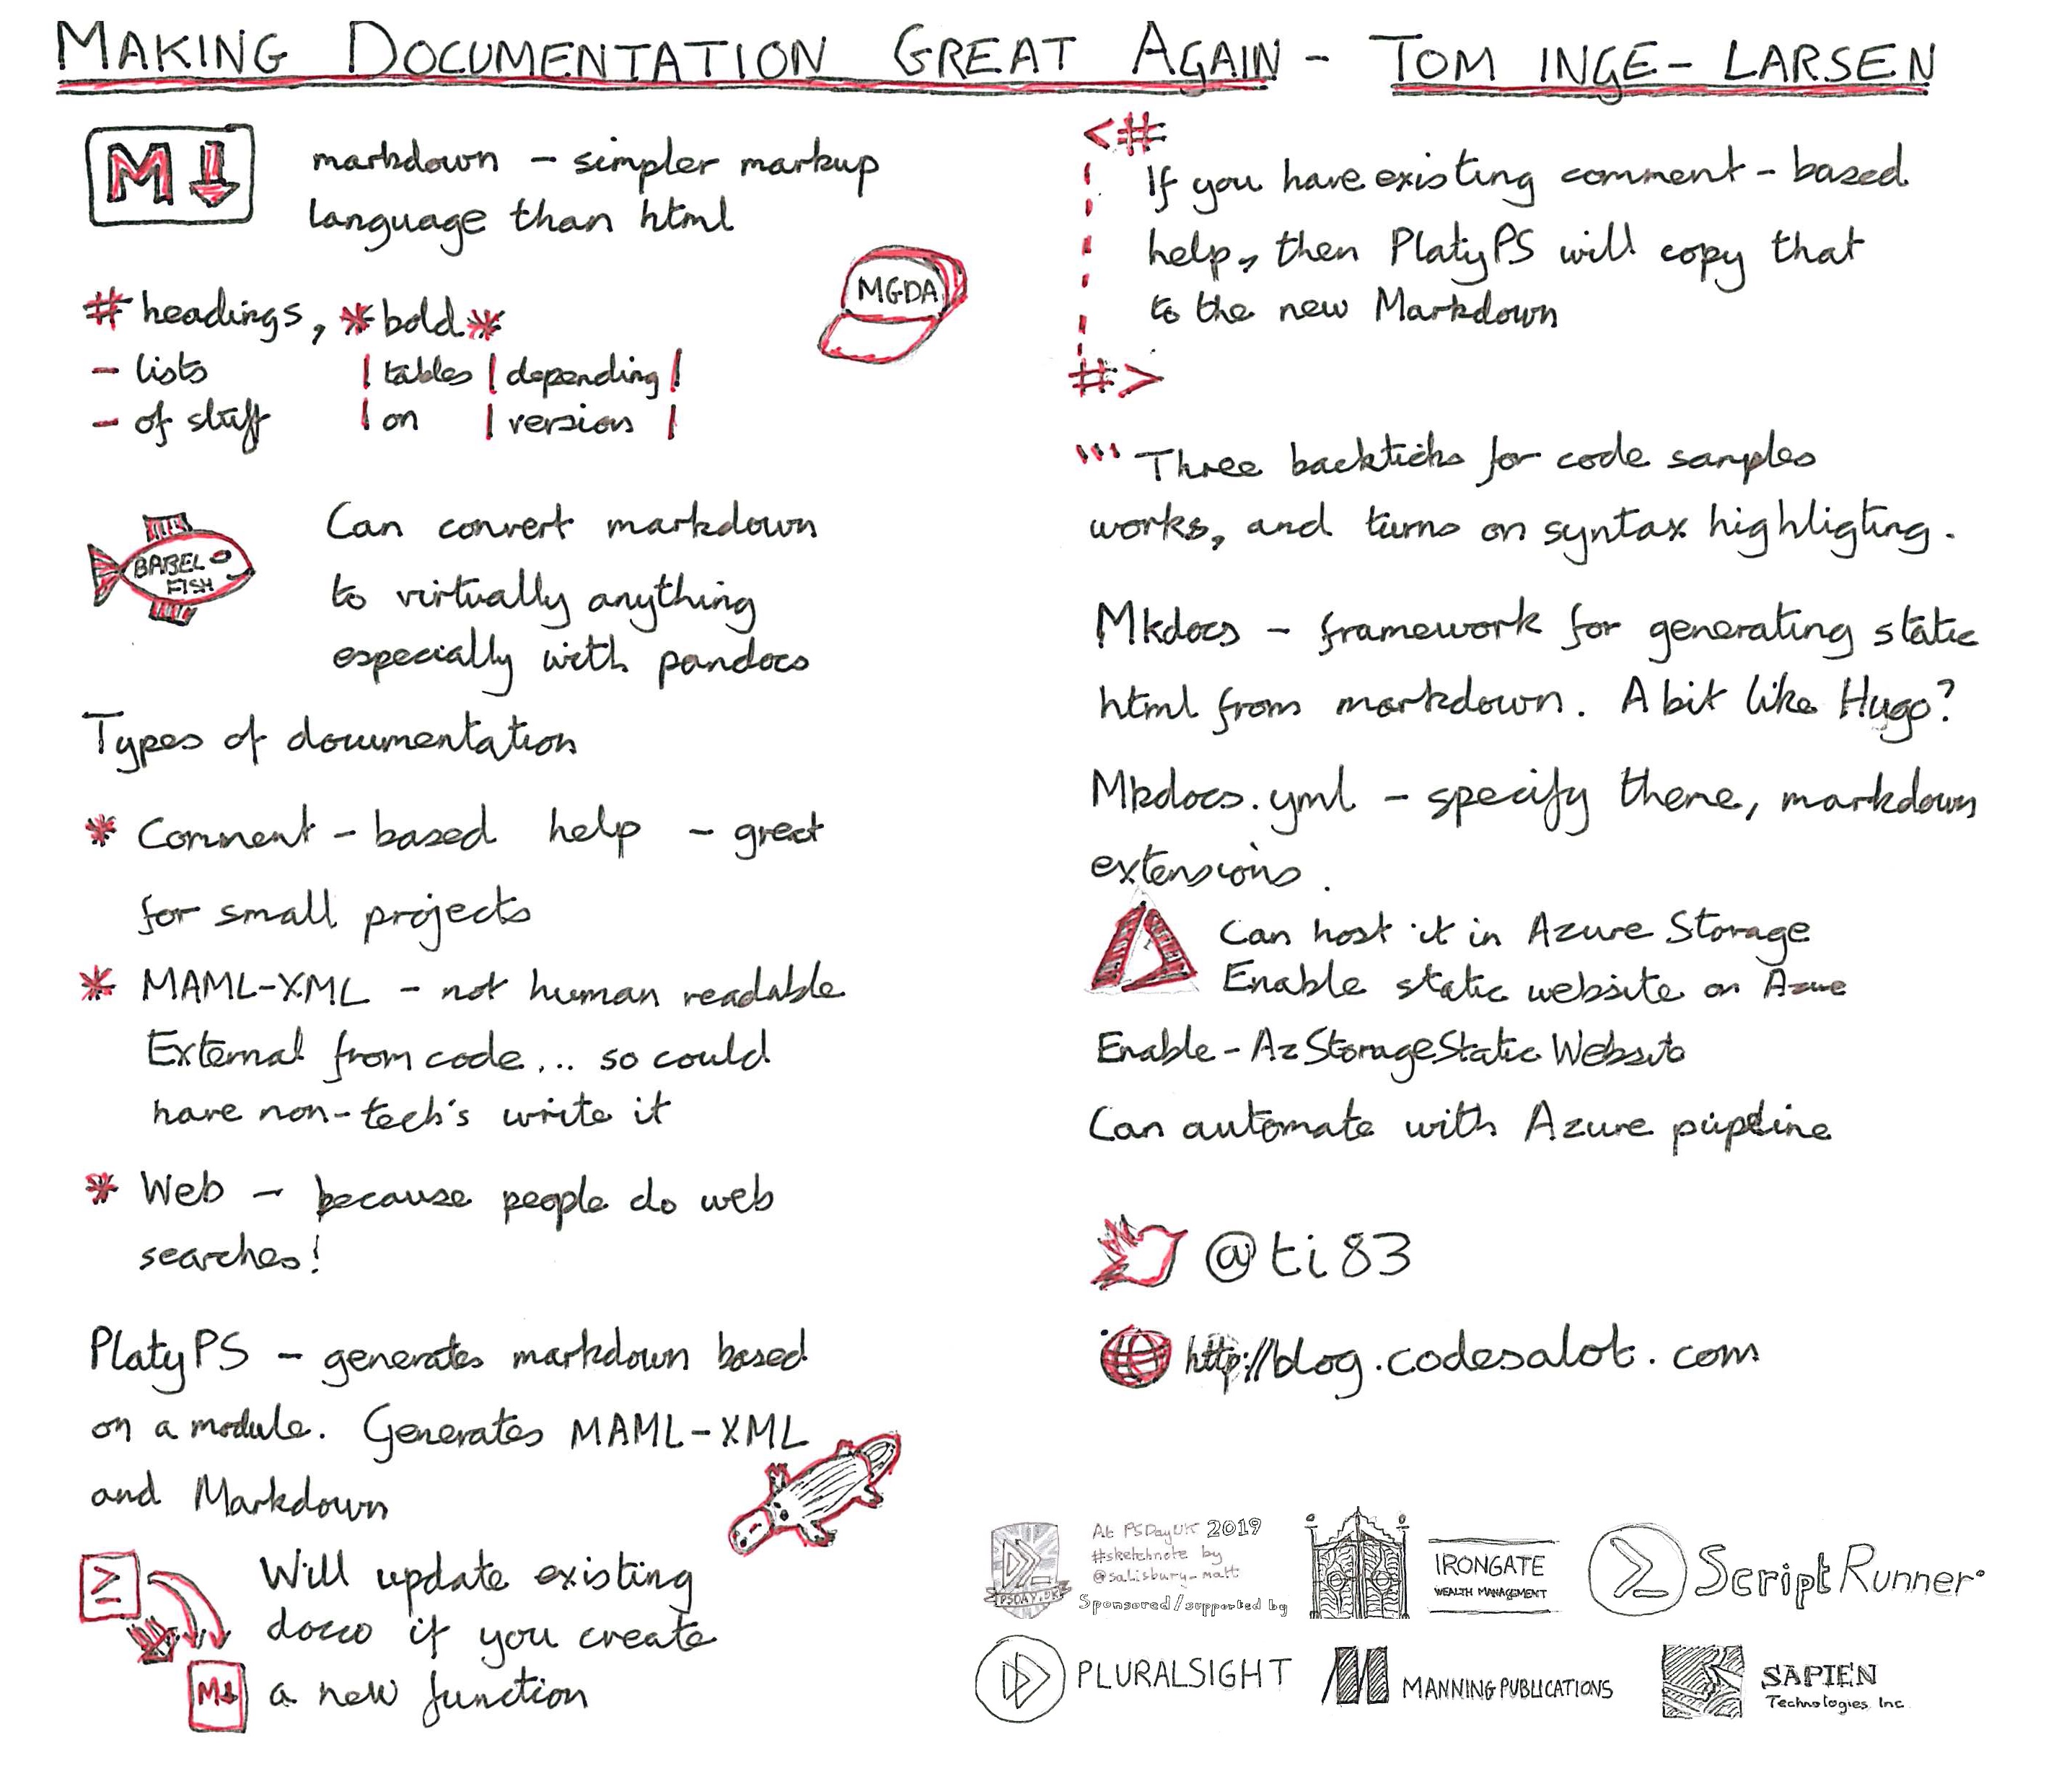 MAKING DOCUMENTATION GREAT AGAIN - TOM INGE-LARSEN
M↓
markdown - simpler markup
language than html
MGDA
# headings, *bold*
- lists
- of stuff
| tables | depending |
| on | version |
BABEL
FISH
Can convert markdown
to virtually anything
especially with pandocs
Types of documentation
* Comment-based help - great
for small projects
* MAML-XML - not human readable
External from code... so could
have non-tech's write it
* Web - because people do web
searches!
PlatyPS - generates markdown based
on a module. Generates MAML-XML
and Markdown
Will update existing
docco if you create
a new function
M↓
<#
If you have existing comment-based
help, then PlatyPS will copy that
to the new Markdown
#>
``` Three backticks for code samples
works, and turns on syntax highligting.
Mkdocs - framework for generating static
html from markdown. A bit like Hugo?
Mkdocs.yml - specify theme, markdown
extensions.
Can host it in Azure Storage
Enable static website on Azure
Enable-AzStorageStaticWebsite
Can automate with Azure pipeline
@ti83
http://blog.codesalot.com
PSDAY.UK
At PSDayUK 2019
#sketchnote by
@salisbury_matt
Sponsored/supported by
IRONGATE
WEALTH MANAGEMENT
ScriptRunner
PLURALSIGHT
MANNING PUBLICATIONS
SAPIEN
Technologies, Inc.